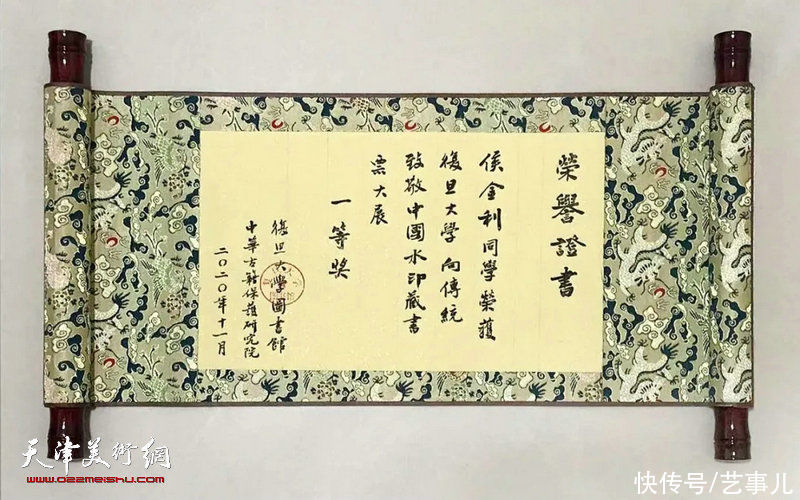 榮譽證書
侯金利同學榮獲
復旦大學 向傳統
致敬中國水印藏書
票大展
一等奖
復旦大學圖書館
中華古籍保護研究院
二〇二〇年十一月
天津美術網
www.022meishu.com
快传号/艺事儿